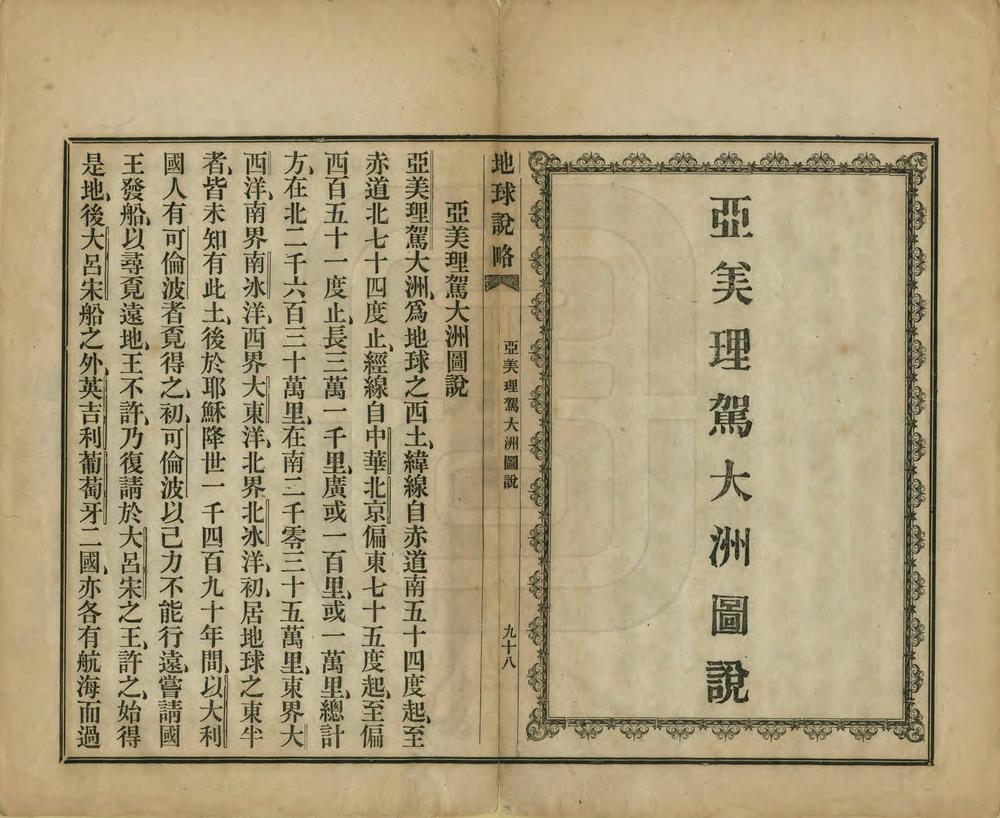 亞美理駕大洲圖說
地球說略
亞美理駕大洲圖說
九十八
亞美理駕大洲圖說
亞美理駕大洲、爲地球之西土、緯線自赤道南五十四度起、至
赤道北七十四度止、經線自中華北京偏東七十五度起、至偏
西百五十一度止、長三萬一千里、廣或一百里、或一萬里、總計
方、在北二千六百三十萬里、在南二千零三十五萬里、東界大
西洋、南界南冰洋、西界大東洋、北界北冰洋、初居地球之東半
者、皆未知有此土、後於耶穌降世一千四百九十年間、以大利
國人有可倫波者覔得之、初可倫波以己力不能行遠、嘗請國
王發船、以尋覔遠地、王不許、乃復請於大呂宋之王、許之、始得
是地、後大呂宋船之外、英吉利葡萄牙二國、亦各有航海而過